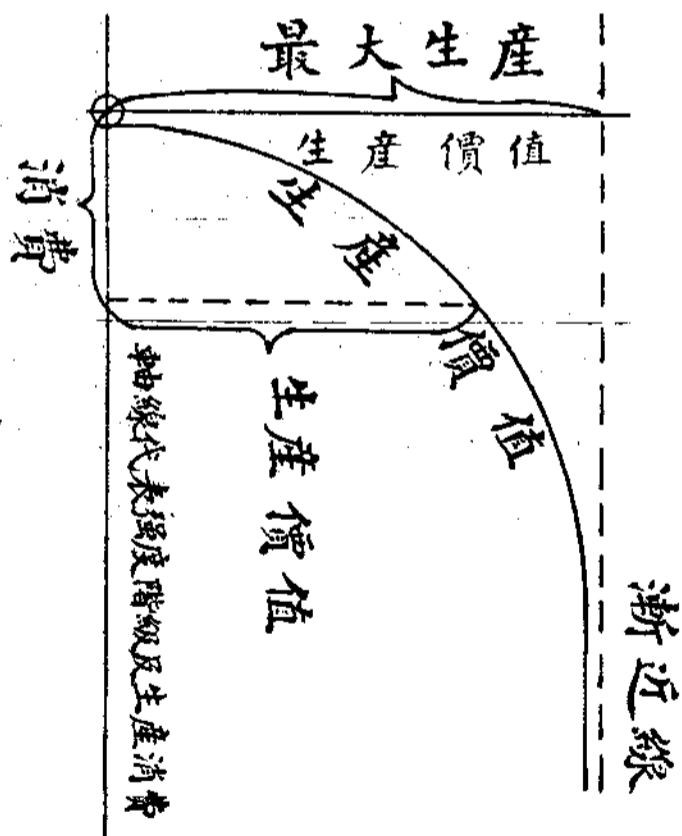 最大生産
生産價值
生産價值
消費
生産價值
軸線代表强度階級及生産消費
漸近線